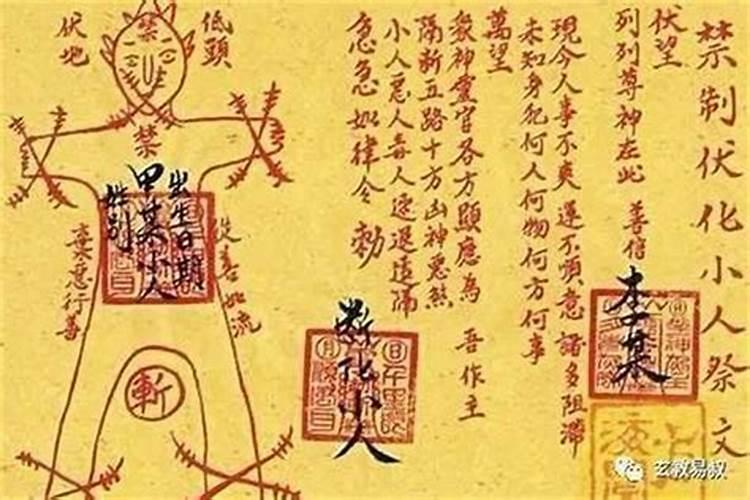 禁制伏化小人祭文
伏望
列列尊神在此 善信
李某
現今人事不爽 運不順意 諸多阻滯
未知身犯何人何物何方何事
萬望
眾神靈官各方顯應為 吾作主
隔斷五路十方凶神惡煞
小人惡人毒人速退遠隔
急急如律令 勅
斬化小人
低頭
伏地
禁
禁
出生日期
甲某小人
性別
從善如流
棄惡行善
斬
玄教易叔